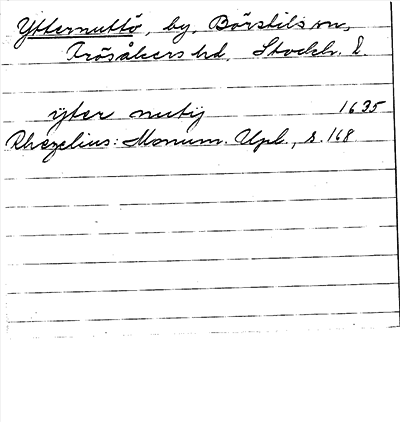 Ytternuttö, by, Börstils sn,
Frösåkers hd, Stockh. l.
ÿter nutÿ 1635
Rhezelius: Monum. Upl., s. 168